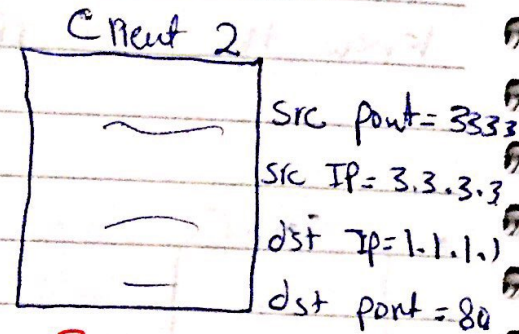 Client 2
src port = 3333
src IP = 3.3.3.3
dst IP = 1.1.1.1
dst port = 80